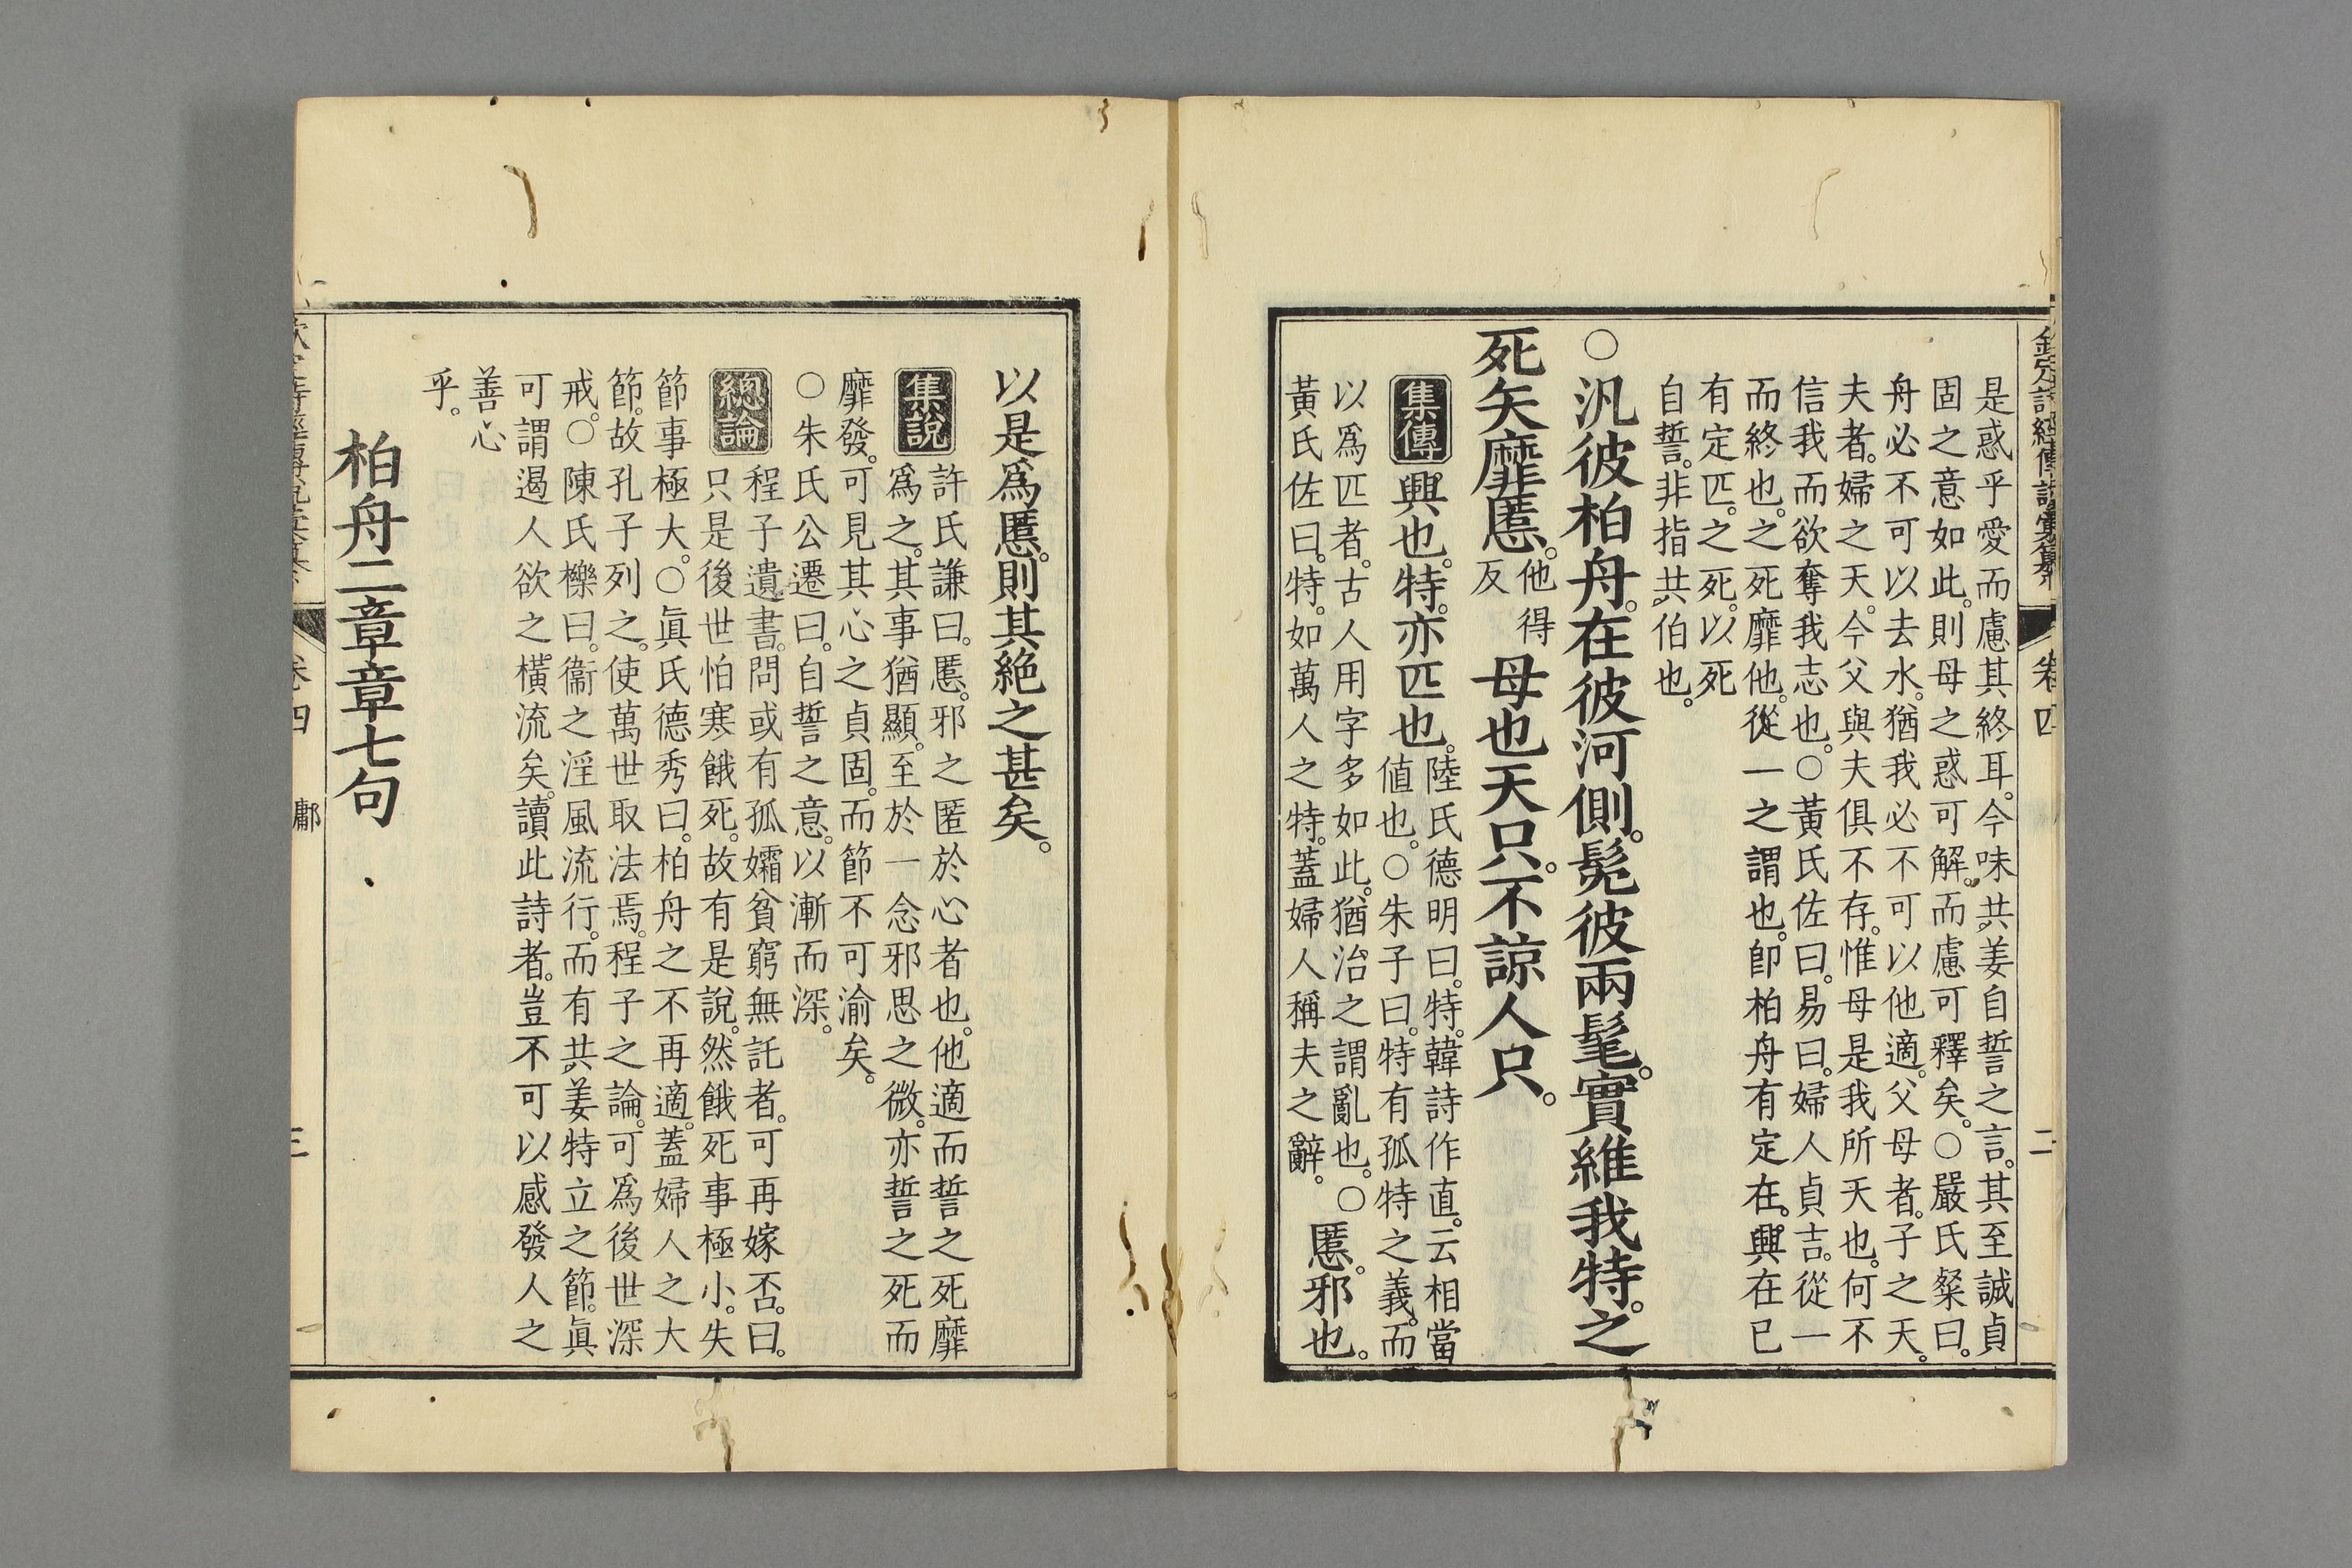 欽定詩經傳說彙纂 卷四 二
是惑乎愛而慮其終耳。今味共姜自誓之言。其至誠貞
固之意如此。則母之惑可解。而慮可釋矣。○嚴氏粲曰。
舟必不可以去水。猶我必不可以他適。父母者。子之天。
夫者。婦之天。今父與夫俱不存。惟母是我所天也。何不
信我而欲奪我志也。○黃氏佐曰。易曰。婦人貞吉。從一
而終也。之死靡他。從一之謂也。卽柏舟有定在。興在已
有定匹。之死。以死
自誓。非指共伯也。
○汎彼柏舟。在彼河側。髧彼兩髦。實維我特。之
死矢靡慝。他得反母也天只。不諒人只。
集傳 興也。特。亦匹也。陸氏德明曰。特。韓詩作直。云相當
値也。○朱子曰。特有孤特之義。而
以爲匹者。古人用字多如此。猶治之謂亂也。○慝。邪也。
黃氏佐曰。特。如萬人之特。蓋婦人稱夫之辭。
以是爲慝。則其絶之甚矣。
集說 許氏謙曰。慝。邪之匿於心者也。他適而誓之死靡
爲之。其事猶顯。至於一念邪思之微。亦誓之死而
靡發。可見其心之貞固。而節不可渝矣。
○朱氏公遷曰。自誓之意。以漸而深。
總論 程子遺書。問或有孤孀貧窮無託者。可再嫁否。曰。
只是後世怕寒餓死。故有是說。然餓死事極小。失
節事極大。○眞氏德秀曰。柏舟之不再適。蓋婦人之大
節。故孔子列之。使萬世取法焉。程子之論。可爲後世深
戒。○陳氏櫟曰。衞之淫風流行。而有共姜特立之節。眞
可謂遏人欲之橫流矣。讀此詩者。豈不可以感發人之
善心
乎。
柏舟二章章七句
卷四 鄘 三